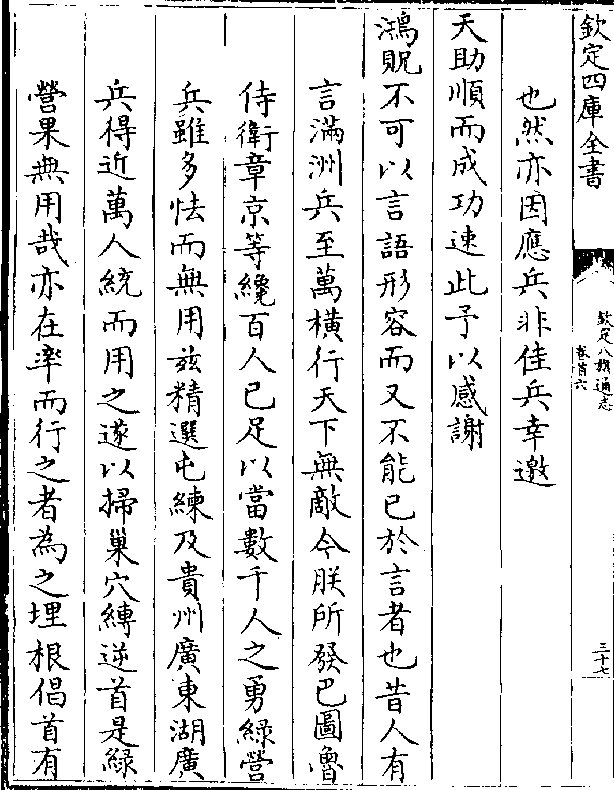 欽定四庫全書
欽定八旗通志
卷首六
三十七
也然亦因應兵非佳兵幸邀
天助順而成功速此予以感謝
鴻貺不可以言語形容而又不能已於言者也昔人有
言滿洲兵至萬橫行天下無敵今朕所發巴圖魯
侍衛章京等纔百人已足以當數千人之勇綠營
兵雖多怯而無用兹精選屯練及貴州廣東湖廣
兵得近萬人統而用之遂以掃巢穴縛逆首是綠
營果無用哉亦在率而行之者為之埋根倡首有